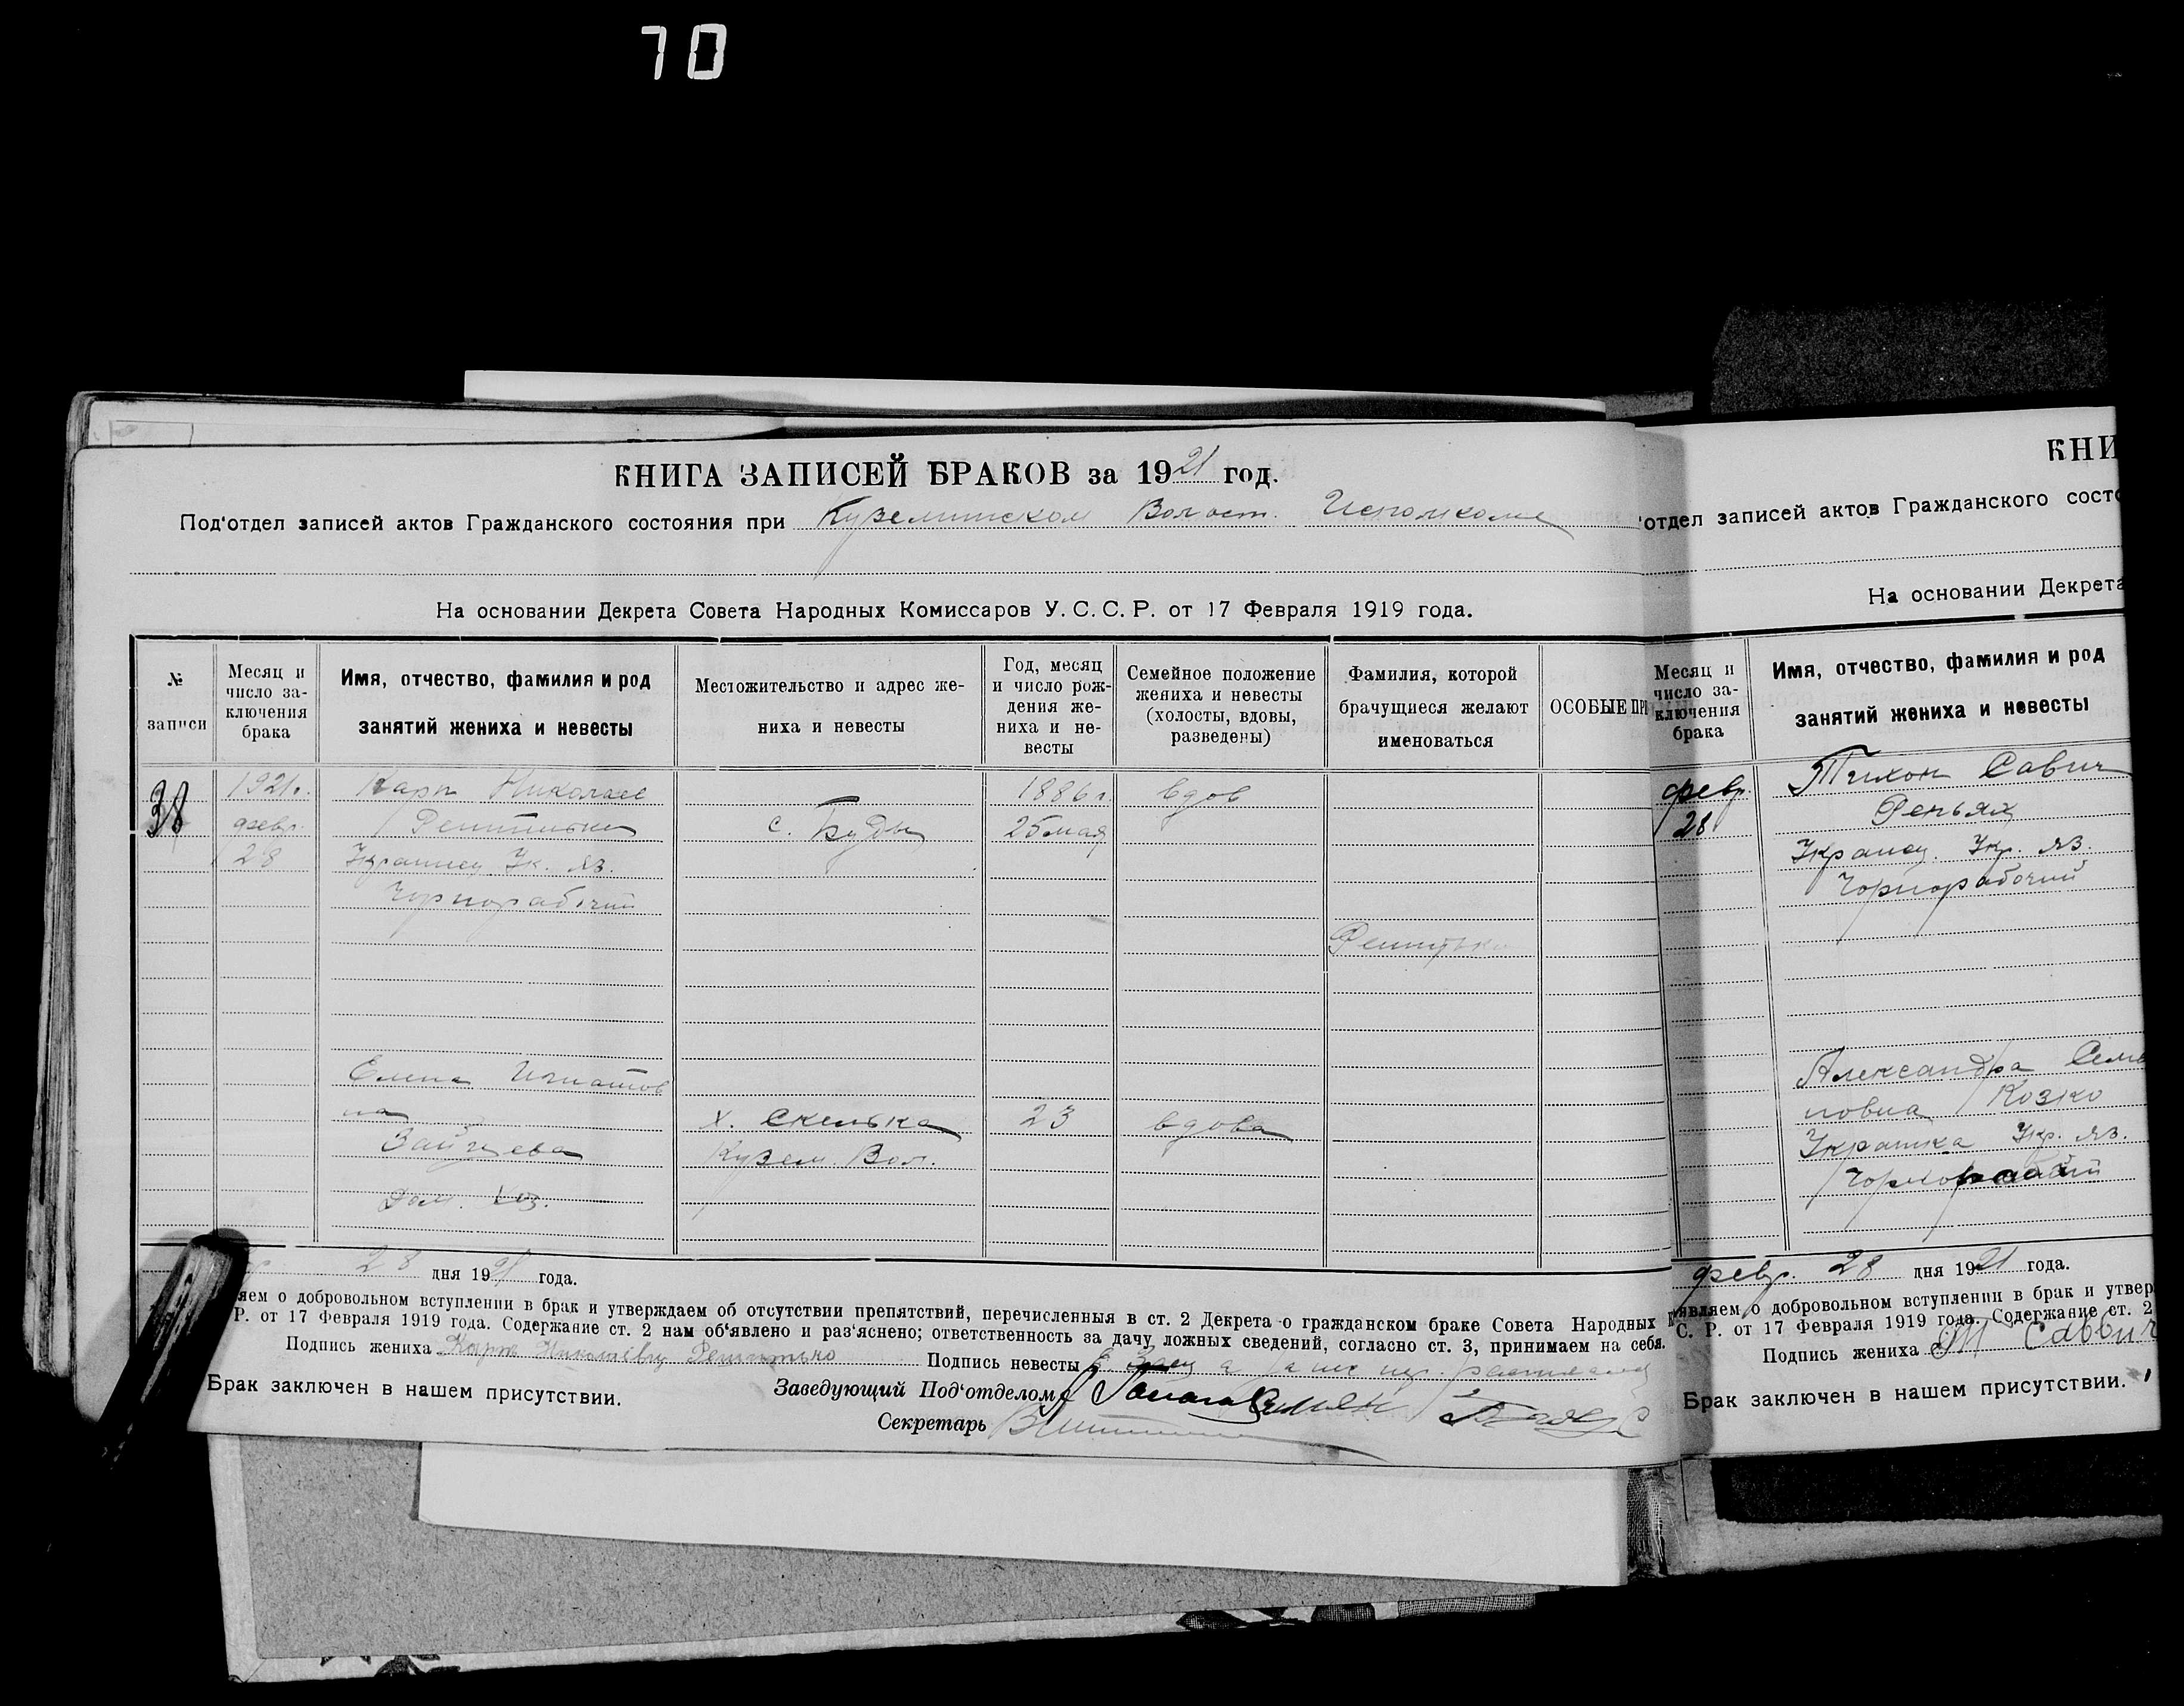 70
КНИГА ЗАПИСЕЙ БРАКОВ за 1921 год.
Под‘отдел записей актов Гражданского состояния при Куземинском Волост. Исполкоме
На основании Декрета Совета Народных Комиссаров У. С. С. Р. от 17 Февраля 1919 года.
№ записи
Месяц и число заключения брака
Имя, отчество, фамилия и род занятий жениха и невесты
Местожительство и адрес жениха и невесты
Год, месяц и число рождения жениха и невесты
Семейное положение жениха и невесты (холосты, вдовы, разведены)
Фамилия, которой брачущиеся желают именоваться
ОСОБЫЕ ПРИ
38
1921г.
февр.
28
Карп Николаев
Украинец Ук. яз.
Чорнорабочий
с. Буды
1886г.
25 мая
вдов
Елена Игнатов
на
Зайцева
Дом. хоз.
х. Скелька
Кузем. Вол.
23
вдова
28 дня 1921 года.
яем о добровольном вступлении в брак и утверждаем об отсутствии препятствий, перечисленныя в ст. 2 Декрета о гражданском браке Совета Народных
Р. от 17 Февраля 1919 года. Содержание ст. 2 нам об‘явлено и раз‘яснено; ответственность за дачу ложных сведений, согласно ст. 3, принимаем на себя.
Подпись жениха Карп
Подпись невесты
Брак заключен в нашем присутствии.
Заведующий Под‘отделом
Секретарь
КНИ
‘отдел записей актов Гражданского состо
На основании Декрета
Месяц и число заключения брака
Имя, отчество, фамилия и род занятий жениха и невесты
февр.
28
Тихон Савич
Украинец. Укр. яз.
Чорнорабочий
Александра Семе
новна Козко
Украинка Укр. яз.
февр. 28 дня 1921 года.
являем о добровольном вступлении в брак и утвер
С. Р. от 17 Февраля 1919 года. Содержание ст. 2
Подпись жениха Т Саввич
Брак заключен в нашем присутствии.